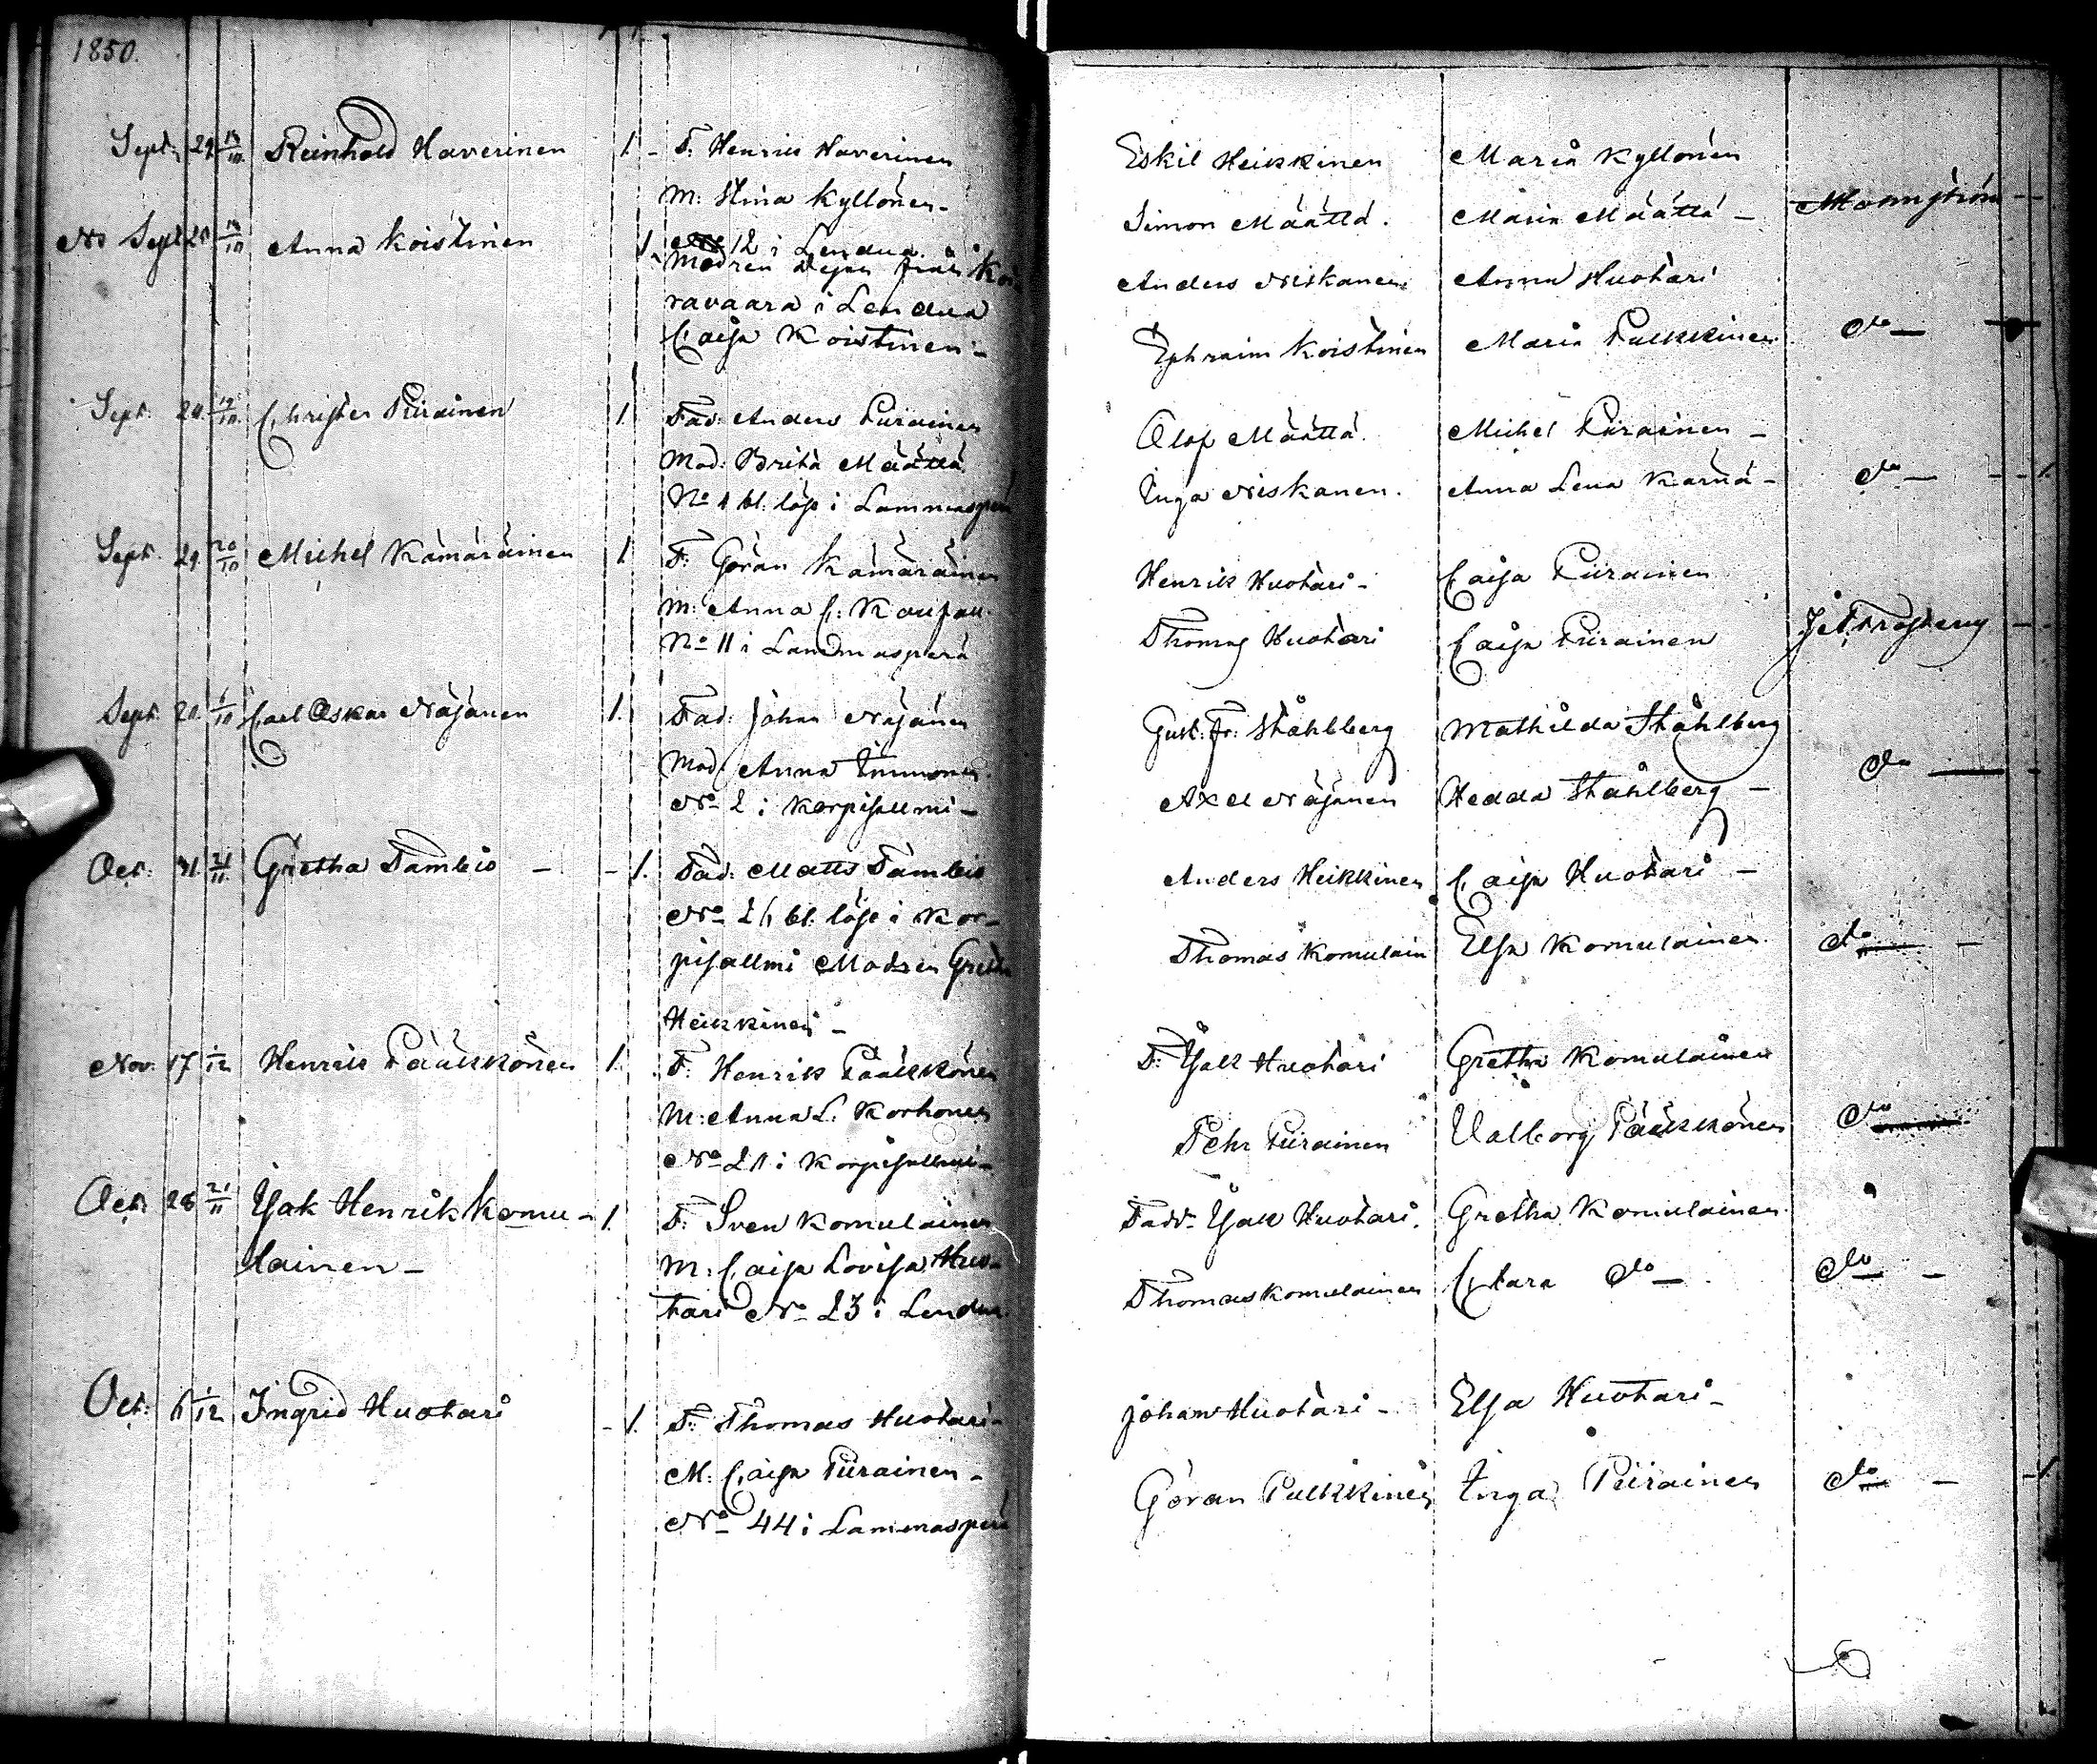 1850.
Sept. 29 13/10 Reinhold Haverinen 1. F: Henrik Haverinen
M: Stina Kyllönen
No 12 i Lendua
Eskil Heikkinen Maria Kyllönen
Simon Määttä. Maria Määttä
No Sept 13/10 Anna Koistinen 1. Modren från Koi
ravaara i Lendua
Caisa Koistinen
Anders Niskanen Anna Huotari
Ephraim Koistinen Maria Pulkkinen do
Sept. 20. 13/10 Christer Piirainen 1. Fad: Anders Piirainen
Mod: Brita Määttä
No 1 bl. löse i Lammasperä
Olof Määttä. Michel Piirainen
Inga Niskanen. Anna Lena Kärnä do 1.
Sept. 29. 20/10 Michel Kämäräinen 1 F: Göran Kämäräinen
M: Anna C:
No 11 i Lammasperä
Henrik Huotari Caisa Piirainen
Thomas Huotari Caisa Piirainen
Sept. 20. 1/10 Carl Oskar Näjänen 1. Fad: Johan Näjänen
Mod Anna Immonen.
No 2 i Korpisallmi
Gust: Fr: Ståhlberg Mathilda Ståhlberg
Axel Näjänen Hedda Ståhlberg do
Oct. 31. 21/11 Gretha Tambio 1. Fad: Matts Tambio
No 26 bl. löse i Kor-
pisallmi Modren Gretha
Heikkinen
Anders Heikkinen Caisa Huotari
Thomas Komulain Elsa Komulainen. do
Nov. 17 1/12 Henrik Pääkkönen 1. F: Henrik Pääkkönen
M: Anna L. Korhonen
No 21 i Korpisallmi
F: Isak Huotari Gretha Komulainen
Pehr Piirainen Valborg Pääkkönen do
Oct. 28 21/11 Isak Henrik Komu- 1. F: Sven Komulainen
lainen M: Caisa Lovisa Huo-
tari No 23 i Lendua
Fadd. Isak Huotari. Gretha Komulainen.
Thomas Komulainen Clara do do
Oct. 6 1/12 Ingrid Huotari 1. F: Thomas Huotari
M: Caisa Piirainen
No 44 i Lammasperä
Johan Huotari Elsa Huotari
Göran Pulkkinen Inga Piirainen do 1.